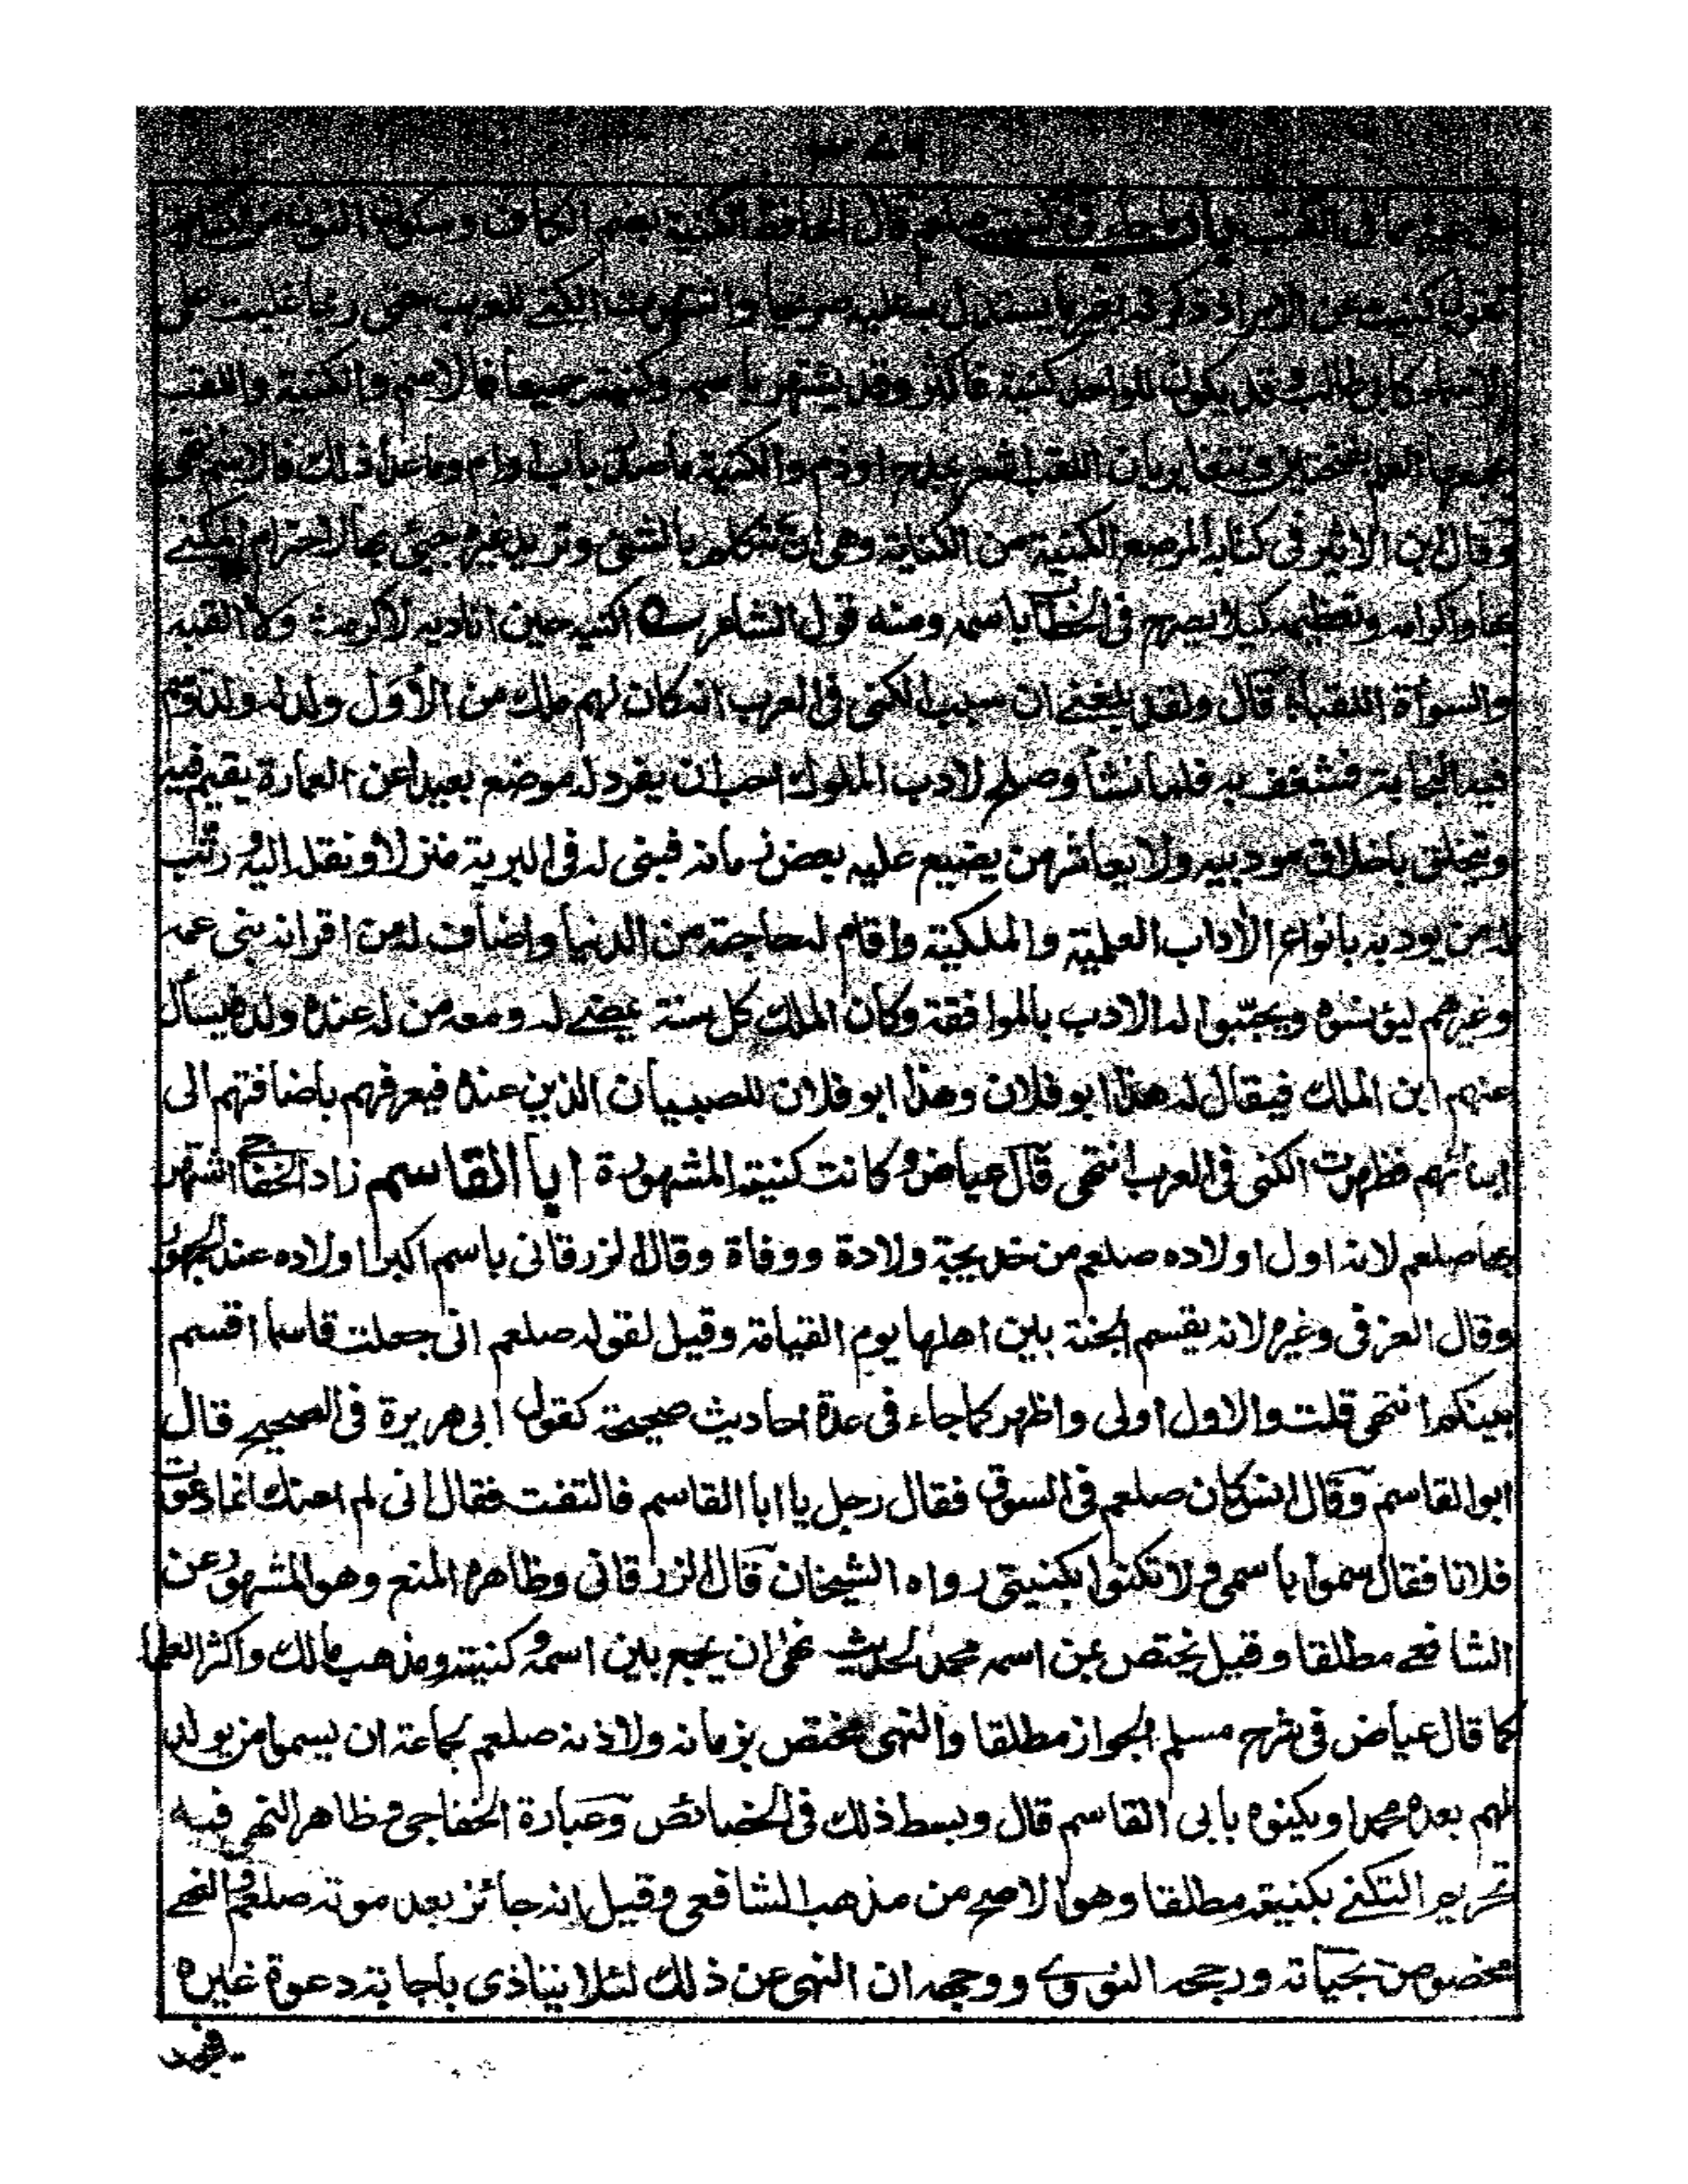 باب ما جاء في كنيته صلعم قال الحافظ الكنية بضم الكاف وسكون النون
تقول كنيت عن الامر اذا ذكرته بغير ما يستدل به عليه صريحا واشتهرت الكنى للعرب حتى ربما غلبت على
الاسماء كابي طالب وقد يكون للواحد كنية فاكثر وقد يشتهر باسمه وكنيته جميعا فالاسم والكنية واللقب
يجمعها العلم ويتغاير بان اللقب اشعر بمدح او ذم والكنية ما صدر باب او ام وما عدا ذلك فالاسم انتهى
وقال ابن الاثير في كتابه المرصع الكنية من الكناية وهو ان تتكلم بالشئ وتريد غيره جيئ بها لاحترام المكنى
بها واكرامه وتعظيمه كيلا يصرح في الخطاب باسمه ومنه قول الشاعر اكنيه حين اناديه لاكرمه ولا القبه
والسوأة اللقبا قال ولقد بلغني ان سبب الكنى في العرب انه كان لهم ملك من الاول ولد له ولد توسم
فيه النجابة فشغف به فلما نشأ وصلح لادب الملوك احب ان يفرد له موضع بعيدا عن العمارة يقيم فيه
ويتخلق باخلاق مودبيه ولا يعاشر من يضيع عليه بعض زمانه فبنى له في البرية منزلا ونقله اليه ورتب
له من يودبه بانواع الأداب العلمية والملكية واقام له حاجته من الدنيا واضاف له من اقرانه بني عمه
وغيرهم ليؤنسوه ويحببوا له الادب بالموافقة وكان الملك كل سنة يمضي له ومعه من له عنده ولد فيسأل
عنهم ابن الملك فيقال له هذا ابو فلان وهذا ابو فلان للصبيان الذين عنده فيعرفهم باضافتهم الى
ابنائهم فظهرت الكنى في العرب انتهى قال عياض وكانت كنيته المشهورة ابا القاسم زاد الخفاجي اشتهر
بها صلعم لانه اول اولاده صلعم من خديجة ولادة ووفاة وقال الزرقاني باسم اكبر اولاده عند الجمهور
وقال العزفي وغيره لانه يقسم الجنة بين اهلها يوم القيامة وقيل لقوله صلعم اني جعلت قاسما اقسم
بينكم انتهى قلت والاول اولى واظهر كما جاء في عدة احاديث صحيحة كقول ابي هريرة في الصحيح قال
ابو القاسم وقال انس كان صلعم في السوق فقال رجل يا ابا القاسم فالتفت فقال اني لم اعنك انما دعوت
فلانا فقال سموا باسمي ولا تكنوا بكنيتي رواه الشيخان قال الزرقاني وظاهره المنع وهو المشهور عن
الشافعي مطلقا وقيل يختص بمن اسمه محمد لحديث نهى ان يجمع بين اسمه وكنيته ومذهب مالك واكثر العلما
كما قال عياض في شرح مسلم الجواز مطلقا والنهي مختص بزمانه ولاذنه صلعم لجماعة ان يسموا من يولد
لهم بعده محمدا ويكنوه بابي القاسم قال وبسط ذلك في الخصائص وعبارة الخفاجي وظاهر النهي فيه
تحريم التكني بكنيته مطلقا وهو الاصح من مذهب الشافعي وقيل انه جائز بعد موته صلعم والنهي
مخصوص بحياته ورجحه النووي ووجهه ان النهي عن ذلك لئلا يتاذى باجابة دعوة غيره